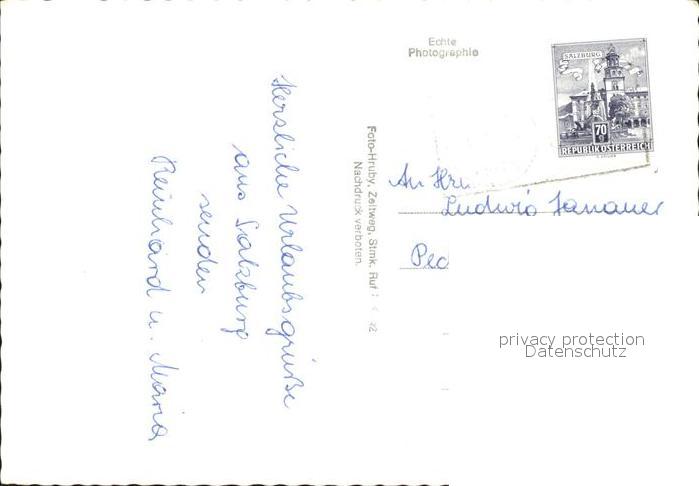 Echte
Photographie
SALZBURG
70
REPUBLIK ÖSTERREICH
Herzliche Urlaubsgrüße
aus Salzburg
senden
Reinhard u. Maria
Foto-Hruby, Zeltweg, Stmk. Ruf
Nachdruck verboten.
An Hrn.
Ludwig
Ped
privacy protection
Datenschutz